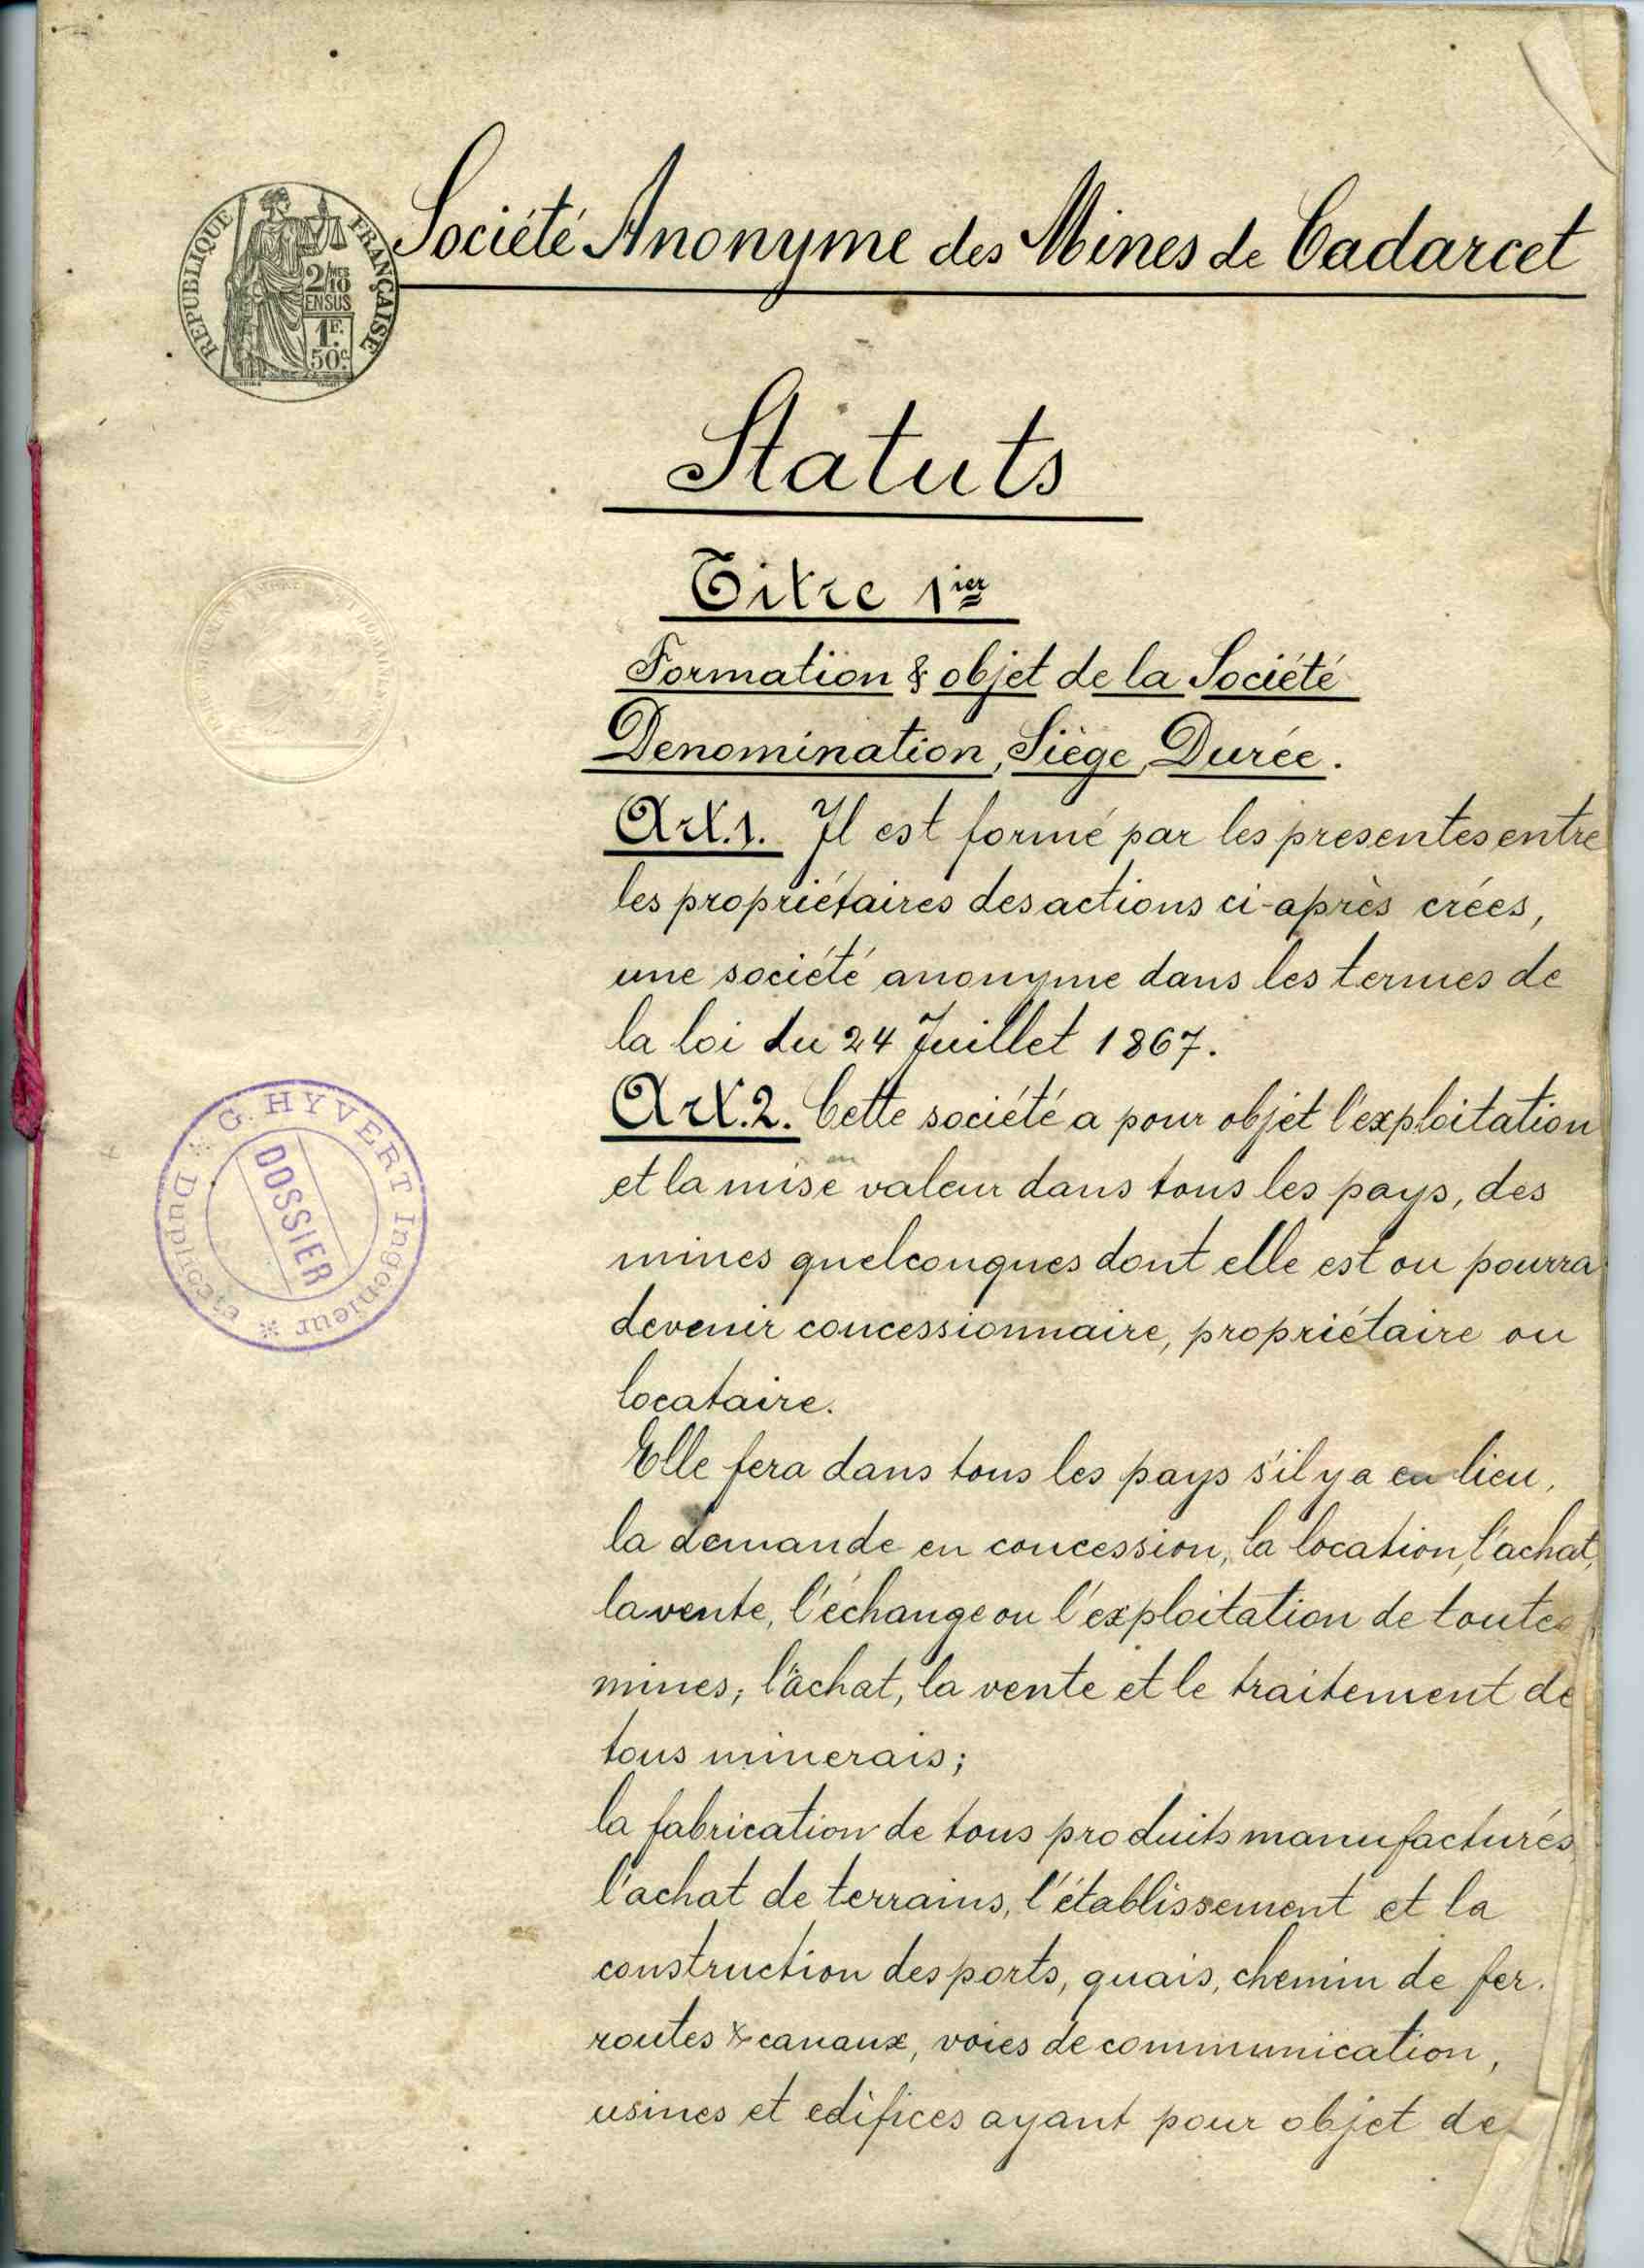 Société Anonyme des Mines de Cadarcet
RÉPUBLIQUE FRANÇAISE
2/10 MES
EN SUS
1F.
50c.
Statuts
Titre 1ier
Formation & objet de la Société
Denomination, Siège, Durée.
Art.1. Il est formé par les presentes entre
les propriétaires des actions ci-après créés,
une société anonyme dans les termes de
la loi du 24 Juillet 1867.
Art.2. Cette société a pour objet l'exploitation
et la mise en valeur dans tous les pays, des
mines quelconques dont elle est ou pourra
devenir concessionnaire, propriétaire ou
locataire.
Elle fera dans tous les pays s'il y a eu lieu,
la demande en concession, la location, l'achat,
la vente, l'échange ou l'exploitation de toutes
mines; l'achat, la vente et le traitement de
tous minerais;
la fabrication de tous produits manufacturés,
l'achat de terrains, l'établissement et la
construction des ports, quais, chemin de fer.
routes & canaux, voies de communication,
usines et edifices ayant pour objet de
G. HYVERT Ingenieur * Duplicata *
DOSSIER